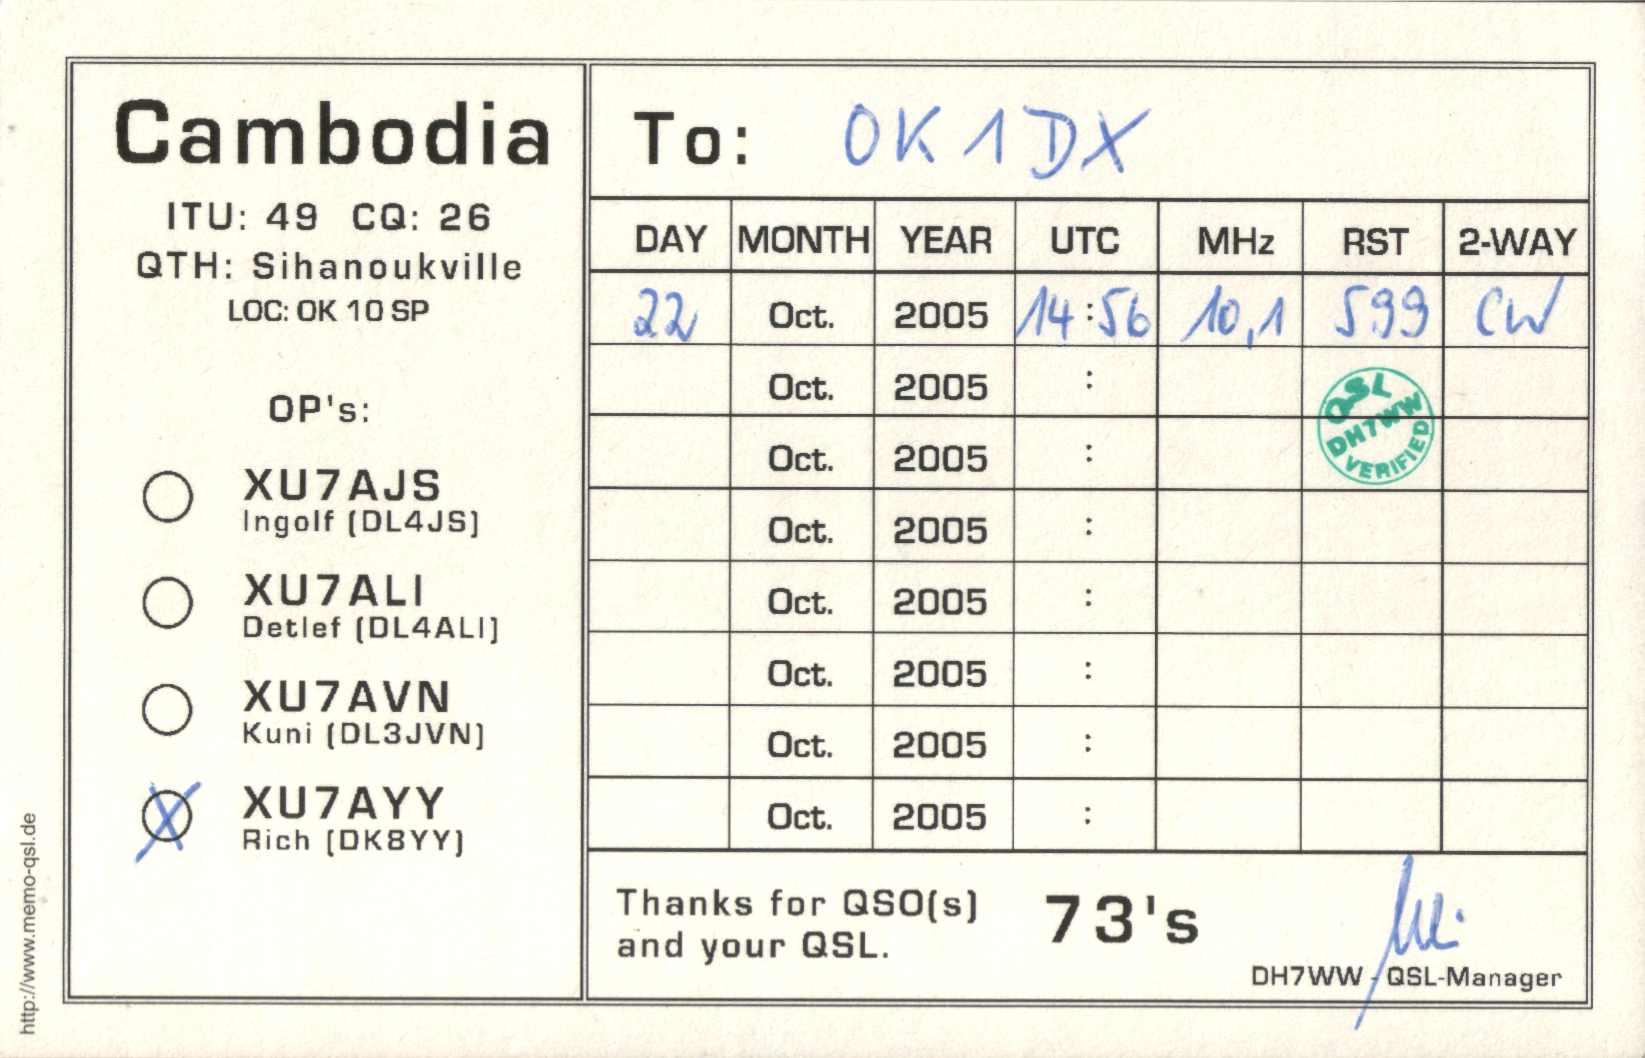 Cambodia
ITU: 49 CQ: 26
QTH: Sihanoukville
LOC: OK 10 SP
OP's:
XU7AJS
Ingolf (DL4JS)
XU7ALI
Detlef (DL4ALI)
XU7AVN
Kuni (DL3JVN)
X XU7AYY
Rich (DK8YY)
http://www.memo-qsl.de
To: OK1DX
DAY MONTH YEAR UTC MHz RST 2-WAY
22 Oct. 2005 14:56 10,1 599 CW
Oct. 2005 :
Oct. 2005 :
Oct. 2005 :
Oct. 2005 :
Oct. 2005 :
Oct. 2005 :
Oct. 2005 :
QSL
DH7WW
VERIFIED
Thanks for QSO(s) 73's
and your QSL.
DH7WW - QSL-Manager